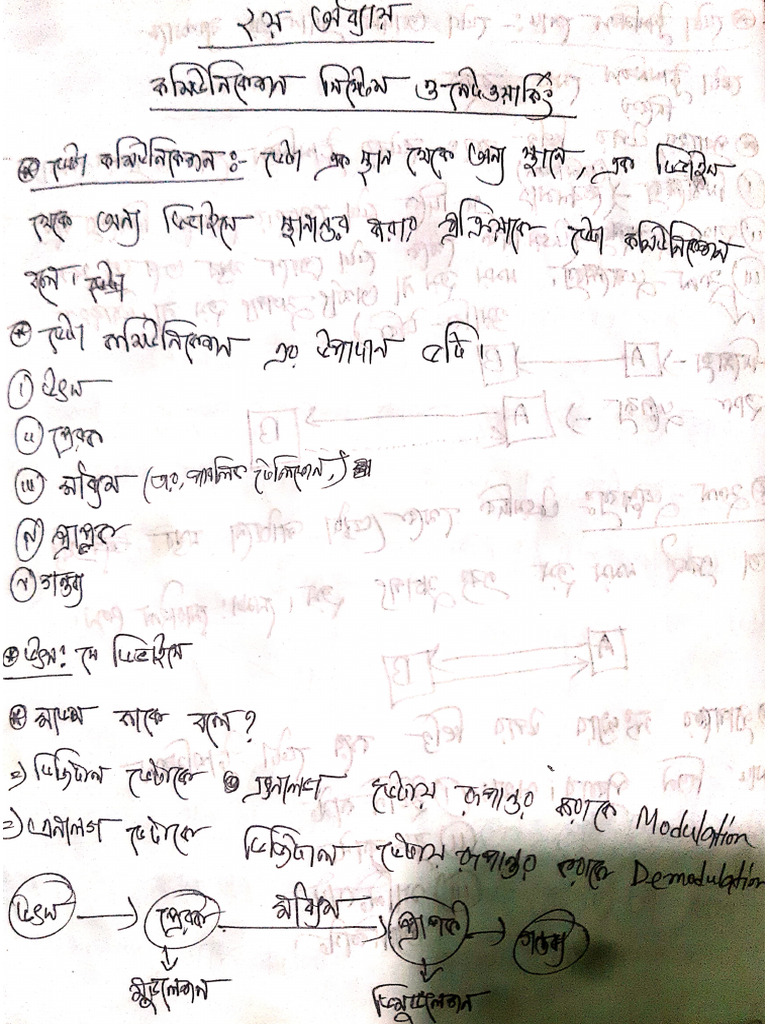 ২য় অধ্যায়
কমিউনিকেশন সিস্টেম ও নেটওয়ার্কিং
* ডেটা কমিউনিকেশন :- ডেটা এক স্থান থেকে অন্য স্থানে, এক ডিভাইস
থেকে অন্য ডিভাইসে স্থানান্তর করার প্রক্রিয়াকে ডেটা কমিউনিকেশন
বলে। ডেটা
* ডেটা কমিউনিকেশন এর উপাদান ৫টি।
i উৎস
ii প্রেরক
iii মাধ্যম (তার, পাবলিক টেলিফোন,)
iv প্রাপক
v গন্তব্য
* উৎস: যে ডিভাইসে
* মাধ্যম কাকে বলে?
=) ডিজিটাল ডেটাকে এনালগ ডেটায় রূপান্তর করাকে Modulation
=) এনালগ ডেটাকে ডিজিটাল ডেটায় রূপান্তর করাকে Demodulation
উৎস প্রেরক মাধ্যম প্রাপক গন্তব্য
মডুলেশন ডিমডুলেশন